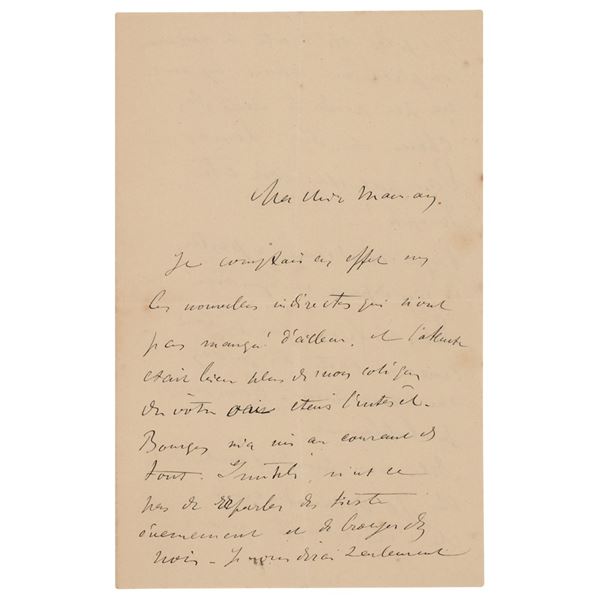 Ma chère maman,
Je comptais en effet sur
les nouvelles indirectes qui n'ont
pas manqué d'ailleurs. et l'attente
était bien plus de mon côté que
du vôtre où était l'intérêt.
Bourges m'a mis au courant de
tout. Inutile, n'est ce
pas de reparler du triste
événement et de broyer du
noir. Je vous dirai seulement